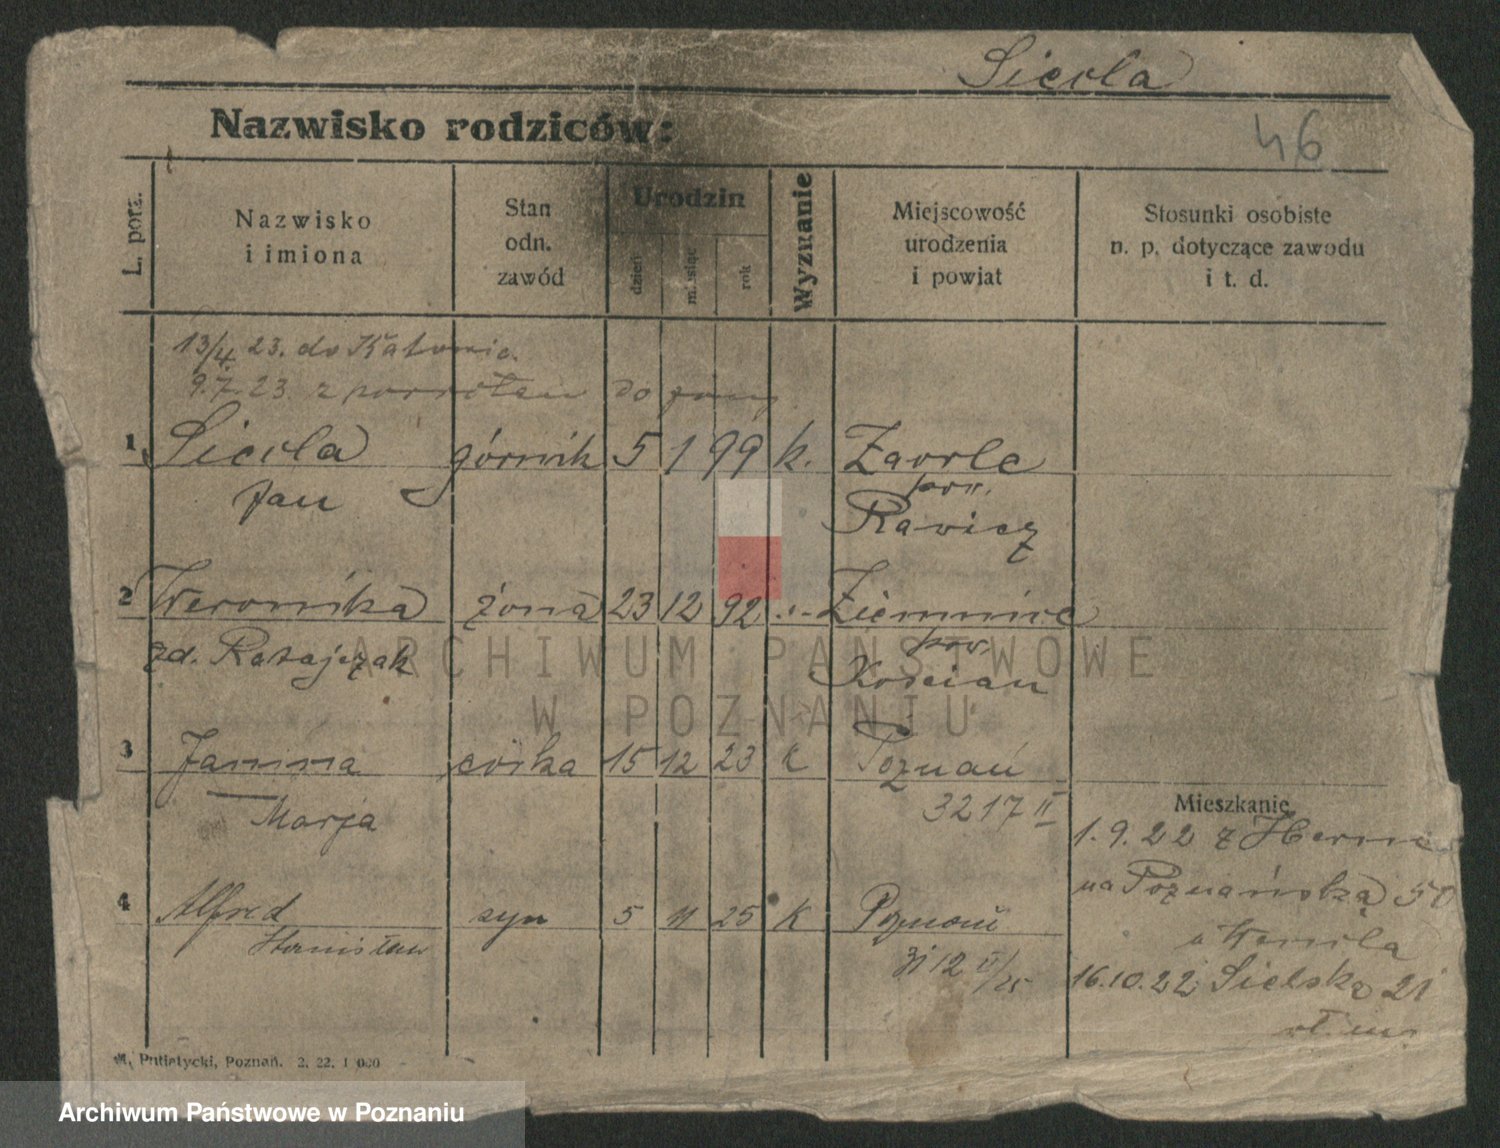 Siecla
Nazwisko rodziców:
46
L. porz.
Nazwisko
i imiona
Stan
odn.
zawód
Urodzin
dzień
miesiąc
rok
Wyznanie
Miejscowość
urodzenia
i powiat
Stosunki osobiste
n. p. dotyczące zawodu
i t. d.
13/4. 23. do Katowic.
9.7.23. z powrotem do żony
1 Siecla górnik 5 1 99 k.
Jan
pow.
Rawicz
2 Weronika żona 23 12 92
zd. Ratajczak
pow.
Kościan
3 Janina córka 15 12 23 k Poznań
Marja
3217 II
4 Alfred syn 5 11 25 K Poznań
Stanisław
Mieszkanie
1. 9. 22 z Herne
na Poznańską 50
u
16.10.22 Sielska 21
M. Putiatycki, Poznań. 2. 22. 1 000
ARCHIWUM PAŃSTWOWE
W POZNANIU
Archiwum Państwowe w Poznaniu